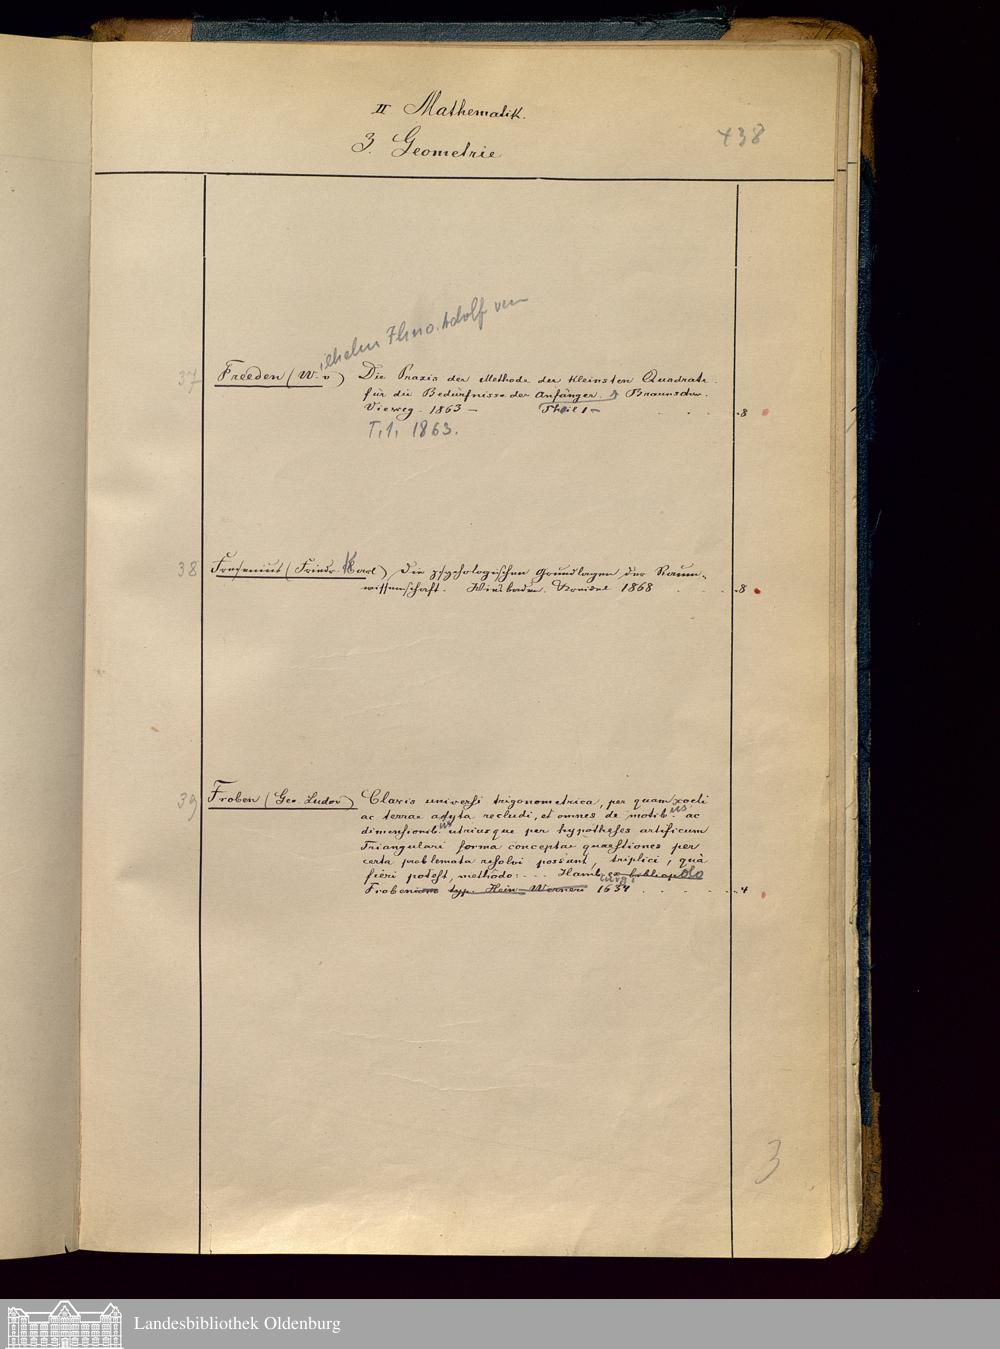 II Mathematik.
3. Geometrie
438
ilhelm Ihno Adolf von
37 Freeden (W. v) Die Praxis der Methode der kleinsten Quadrate.
für die Bedürfnisse der Anfänger. Braunschw.
Vieweg. 1863 — Theil 1 — 8
T. 1. 1863.
38 Fresenius (Friedr. Karl) Die psychologischen Grundlagen der Raum-
wissenschaft. Wiesbaden. Kreidel 1868 8
39 Froben (Geo. Ludov) Clavis universi trigonometrica, per quam coeli
ac terrae adyta recludi, et omnes de motib. us ac
dimensionib. us utriusque per hypotheses artificum
Triangulari forma conceptae quaestiones per
certa problemata resolvi possunt, triplici, quà
fieri potest, methodo: --- Hamb. ex bibliopolo
Frobeniano typ. Hein. Werneri 1634 4
burgi
3
Landesbibliothek Oldenburg